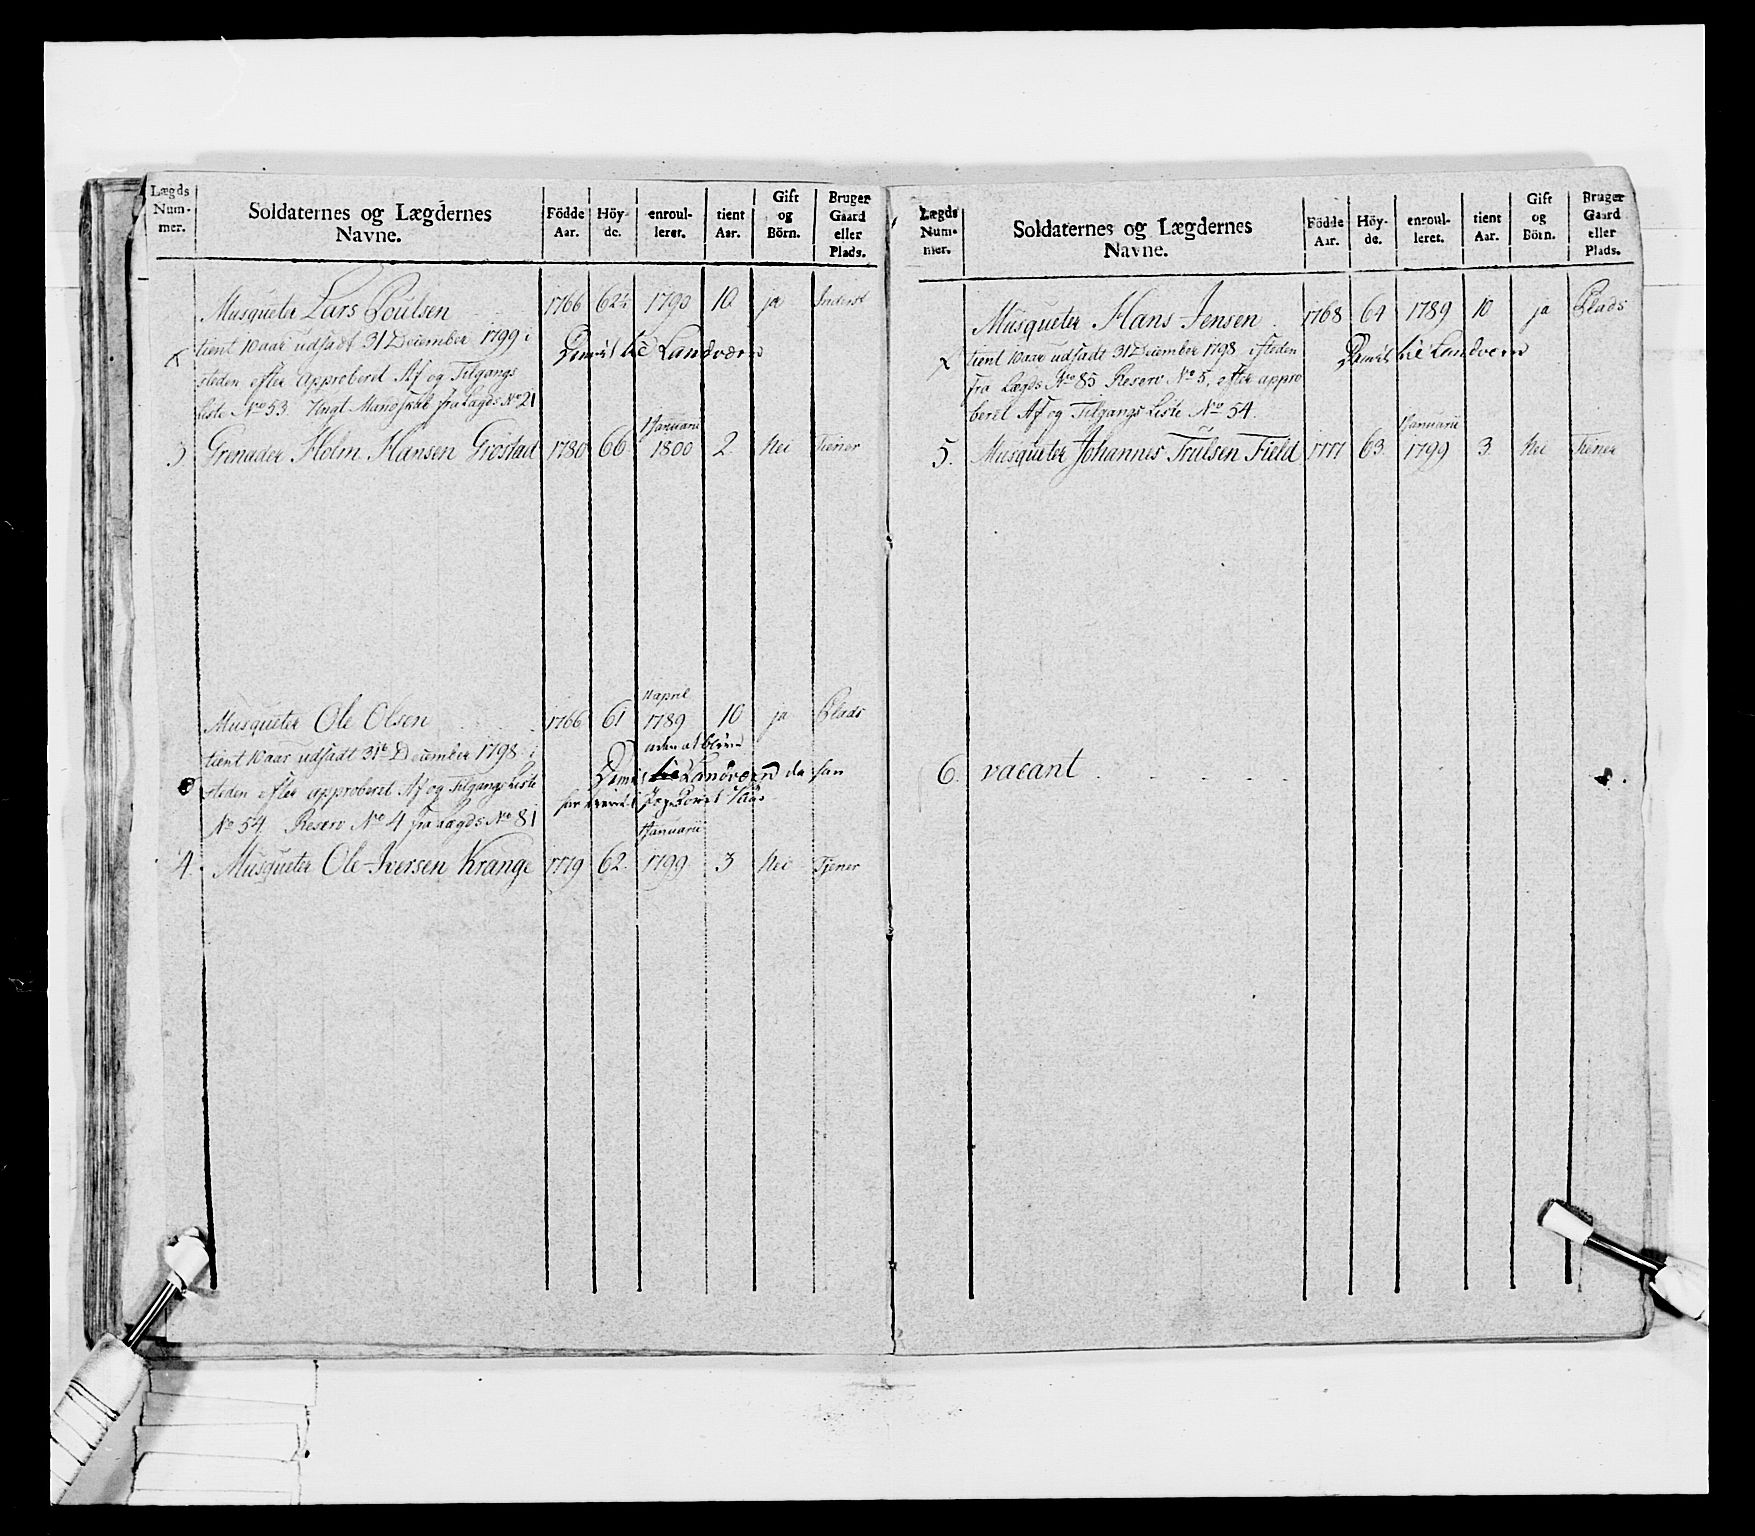 Lægds Num- mer. Soldaternes og Lægdernes Navne. Födde Aar. Höy- de. enroul- leret. tient Aar. Gift og Börn. Bruger Gaard eller Plads.
Musqueter Lars Poulsen 1766 62½ 1790 10 ja Inderst
tient 10 aar udsadt 31 December 1799 i
Dimit til Landværn
steden efter Approberet Af og Tilgangs
Liste No 53. Ungt Mandskab fra Lægds No 21
1 Januarii
3 Grenader Holm Hansen Grostad 1780 66 1800 2 Nei Tiener
1 april
Musqueter Ole Olsen 1766 61 1789 10 ja Plads
tient 10 aar udsadt 31te December 1798 i
steden efter approberet Af og Tilgangs Liste
Landværn da han
No 54 Reserv No 4 fra Lægds No 81
1 Januarii
4. Musqueter Ole Iversen Krange 1779 62. 1799 3 Nei Tjener
Lægds Num- mer. Soldaternes og Lægdernes Navne. Födde Aar. Höy- de. enroul- leret. tient Aar. Gift og Börn. Bruger Gaard eller Plads.
Musqueter Hans Jensen 1768 64 1789 10 ja Plads
tient 10 aar udsadt 31 December 1798 i steden
Dimit til Landværn
fra Lægds No 85 Reserv No 5, efter appro
beret Af og Tilgangs Liste No 54.
1 Januarii
5. Musqueter Johannes Trulsen Field 1777 63. 1799 3 Nei Tiener
6. vacant